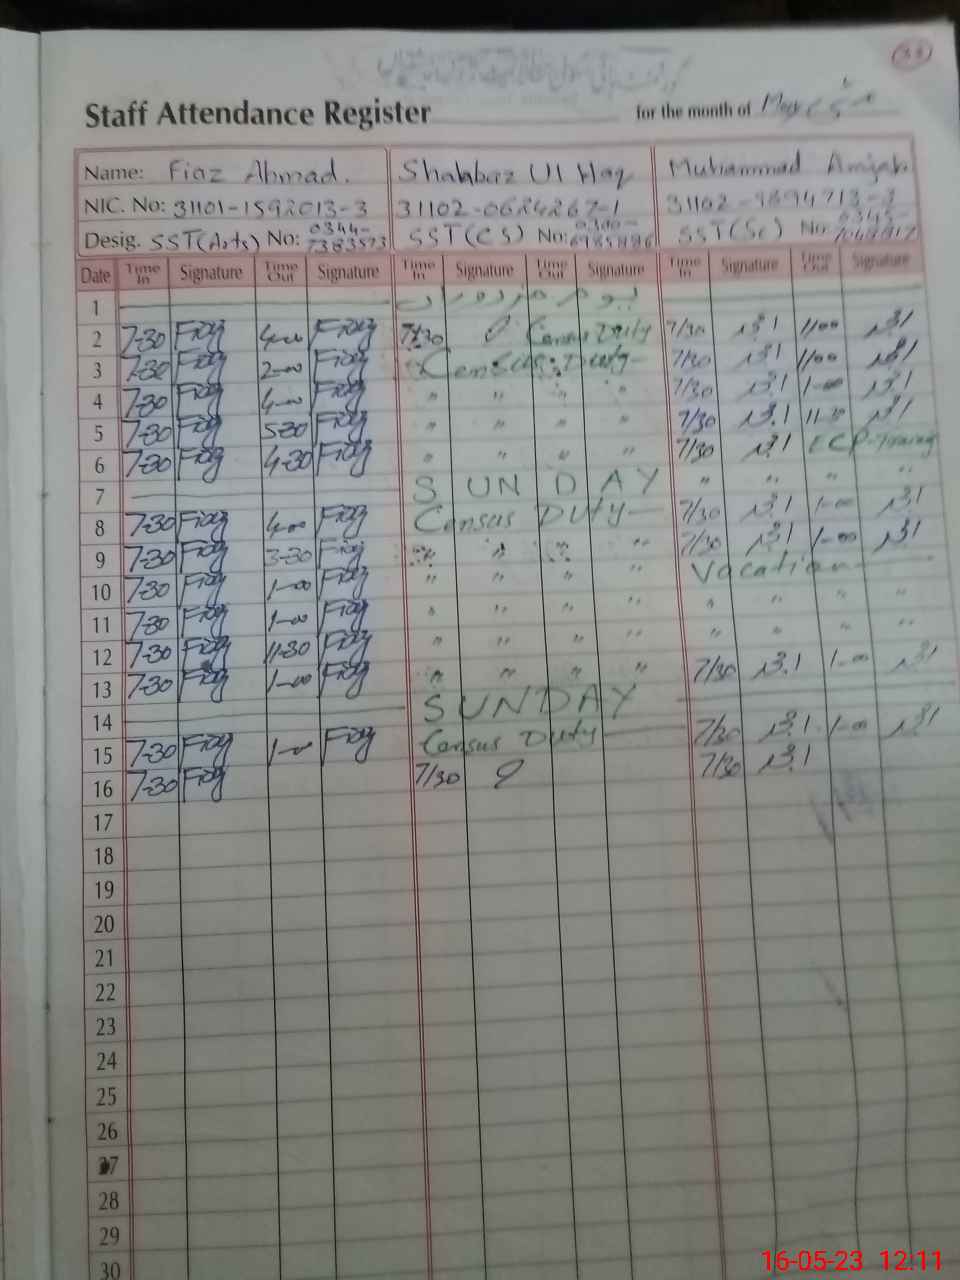 Staff Attendance Register for the month of May
Name: Fiaz Ahmad. Shahbaz Ul Haq Muhammad Amjad
NIC. No: 31101-1592013-3 31102-0624267-1 31102-9694713-3
Desig. SST(Arts) No: 0344-7383573 SST(CS) No: SST(Sc) No:
Date Time In Signature Time Out Signature Time In Signature Time Out Signature Time In Signature Time Out Signature
1 یوم مزدوراں
2 7-30 Fiaz 4-00 Fiaz 7/30 Census Duty 7/30 11-00
3 7-30 Fiaz 2-00 Fiaz Census Duty 7/30 11-00
4 7-30 Fiaz 4-00 Fiaz " " " " 7/30 1-00
5 7-30 Fiaz 5-30 Fiaz " " " " 7/30 11-30
6 7-30 Fiaz 4-30 Fiaz " " " " 7/30 ECP-Training
7 SUNDAY " " " "
8 7-30 Fiaz 4-00 Fiaz Census Duty 7/30 1-00
9 7-30 Fiaz 3-30 Fiaz " " " " 7/30 1-00
10 7-30 Fiaz 1-00 Fiaz " " " " Vacation
11 7-30 Fiaz 1-00 Fiaz " " " " " " " "
12 7-30 Fiaz 11-30 Fiaz " " " " " " " "
13 7-30 Fiaz 1-00 Fiaz " " " " 7/30 1-00
14 SUNDAY
15 7-30 Fiaz 1-00 Fiaz Census Duty 7/30 1-00
16 7-30 Fiaz 7/30 7/30
17
18
19
20
21
22
23
24
25
26
27
28
29
30
16-05-23 12:11